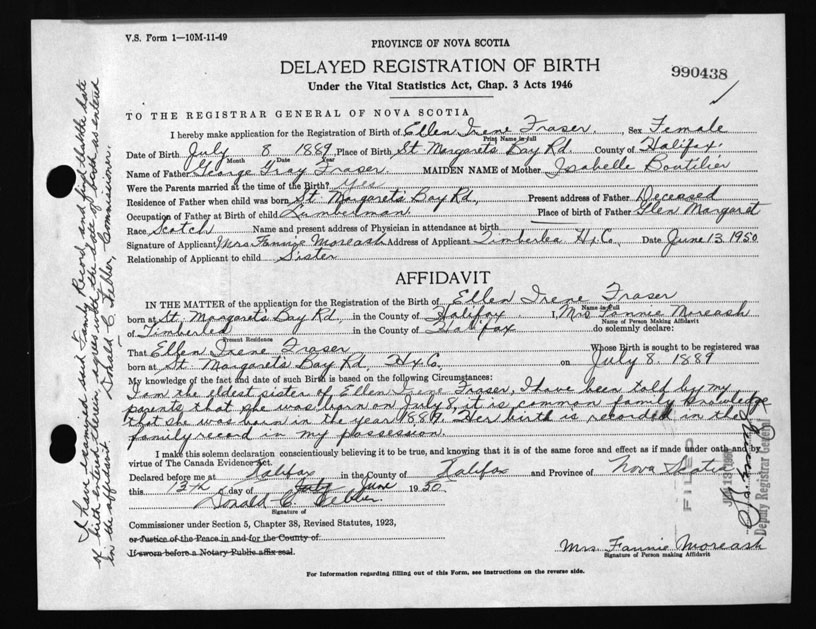 V.S. Form 1—10M-11-49
PROVINCE OF NOVA SCOTIA
DELAYED REGISTRATION OF BIRTH
990438
Under the Vital Statistics Act, Chap. 3 Acts 1946
TO THE REGISTRAR GENERAL OF NOVA SCOTIA
I hereby make application for the Registration of Birth of Ellen Irene Fraser, Sex Female
Print Name in full
Date of Birth July 8 1889 Place of Birth St. Margarets Bay Rd. County of Halifax.
Month Date Year
Name of Father George Gray Fraser MAIDEN NAME of Mother Isabelle Boutilier
Were the Parents married at the time of the Birth? Yes
Residence of Father when child was born St. Margaret's Bay Rd., Present address of Father Deceased
Occupation of Father at Birth of child Lumberman Place of birth of Father Glen Margaret
Race Scotch Name and present address of Physician in attendance at birth
Signature of Applicant Mrs Fannie Moreash Address of Applicant Timberlea Hx Co. Date June 13 1950
Relationship of Applicant to child Sister
AFFIDAVIT
IN THE MATTER of the application for the Registration of the Birth of Ellen Irene Fraser
Name in Full
born at St. Margaret's Bay Rd., in the County of Halifax I, Mrs Fannie Moreash
Name of Person Making Affidavit
of Timberlea in the County of Halifax do solemnly declare:
Present Residence
That Ellen Irene Fraser Whose Birth is sought to be registered was
born at St. Margarets Bay Rd. Hx Co. on July 8. 1889
My knowledge of the fact and date of such Birth is based on the following Circumstances:
I am the eldest sister of Ellen Irene Fraser, I have been told by my
parents that she was born on July 8, it is common family knowledge
that she was born in the year 1889. Her birth is recorded in the
family record in my possession.
I make this solemn declaration conscientiously believing it to be true, and knowing that it is of the same force and effect as if made under oath and by
virtue of The Canada Evidence Act.
Declared before me at Halifax in the County of Halifax and Province of Nova Scotia
this 13th day of July June 1950
Donald C.
Signature of
Commissioner under Section 5, Chapter 38, Revised Statutes, 1923,
or Justice of the Peace in and for the County of
If sworn before a Notary Public affix seal.
Mrs. Fannie Moreash
Signature of Person making Affidavit
For Information regarding filling out of this Form, see instructions on the reverse side.
I have examined said Family Record, and find that the date
of birth entered therein, agrees with the date of birth as entered
in the affidavit. Donald C. Commissioner.
FILED
Deputy Registrar General